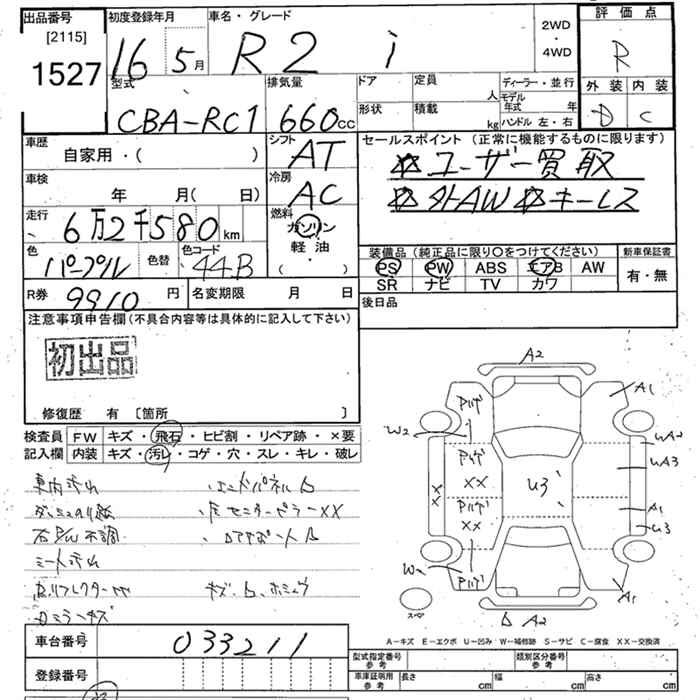 出品番号
[2115]
1527
初度登録年月
16 5月
車名・グレード
R2 i
2WD
・
4WD
評価点
R
外装 内装
D C
型式
CBA-RC1
排気量
660cc
ドア
定員 人
形状
積載 kg
ディーラー・並行
モデル年式 年
ハンドル 左・右
車歴
自家用・( )
シフト
AT
セールスポイント(正常に機能するものに限ります)
☆ユーザー買取
☆外AW ☆キーレス
車検
年 月( 日)
冷房
AC
走行
6万2千580km
燃料
ガソリン
軽油
・( )
色
パープル
色替
色コード
44B
装備品(純正品に限り○をつけてください)
PS PW ABS エアB AW
SR ナビ TV カワ
新車保証書
有・無
R券
9910円
名変期限 月 日
後日品
注意事項申告欄(不具合内容等は具体的に記入して下さい)
初出品
修復歴 有 〔箇所 〕
検査員記入欄
FW キズ・飛石・ヒビ割・リペア跡・×要
内装 キズ・汚レ・コゲ・穴・スレ・キレ・破レ
車内汚れ
右P/W不調
シート汚れ
左センターピラーXX
A2
A1
Pハゲ
W2
UA2
UA3
Pハゲ
XX
U3
XX
Pハゲ
XX
A1
U3
Pハゲ
A1
スペア
A2
A－キズ E－エクボ U－凹み W－補修跡 S－サビ C－腐食 XX－交換済
車台番号
033211
登録番号
型式指定番号 参考
類別区分番号 参考
車庫証明用 参考
長さ cm
幅 cm
高さ cm